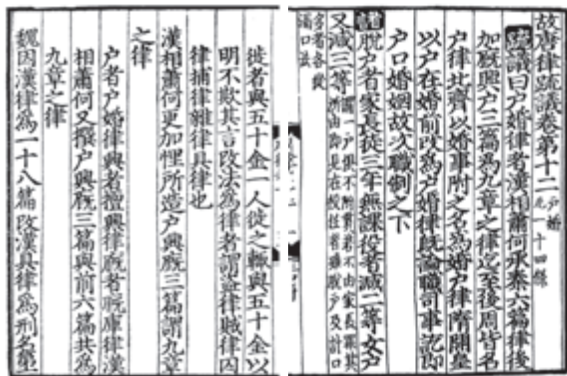 故唐律疏議卷第十二 户婚 凡一十四條
疏議曰户婚律者漢相蕭何承秦六篇律後
加厩興户三篇爲九章之律迄至後周皆名
户律北齊以婚事附之名爲婚户律隋開皇
以户在婚前改爲户婚律既論職司事訖即
户口婚姻故次職制之下
脱户者家長徒三年無課役者減二等女户
又減三等
徙者與五十金一人徙之輙與五十金以
明不欺其言改法爲律者謂盗律賊律囚
律捕律雜律具律也
漢相蕭何更加悝所造户興厩三篇謂九章
之律
户者户婚律興者擅興律厩者厩庫律漢
相蕭何又撰户興厩三篇與前六篇共爲
九章之律
魏因漢律爲一十八篇改漢具律爲刑名第